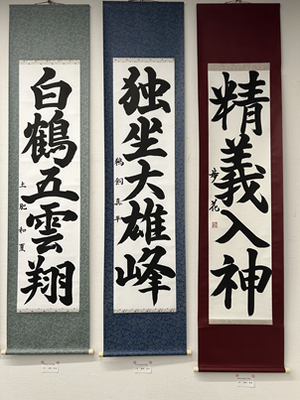 精義入神
歩花
独坐大雄峰
鵜飼真平
白鶴五雲翔
土肥和夏